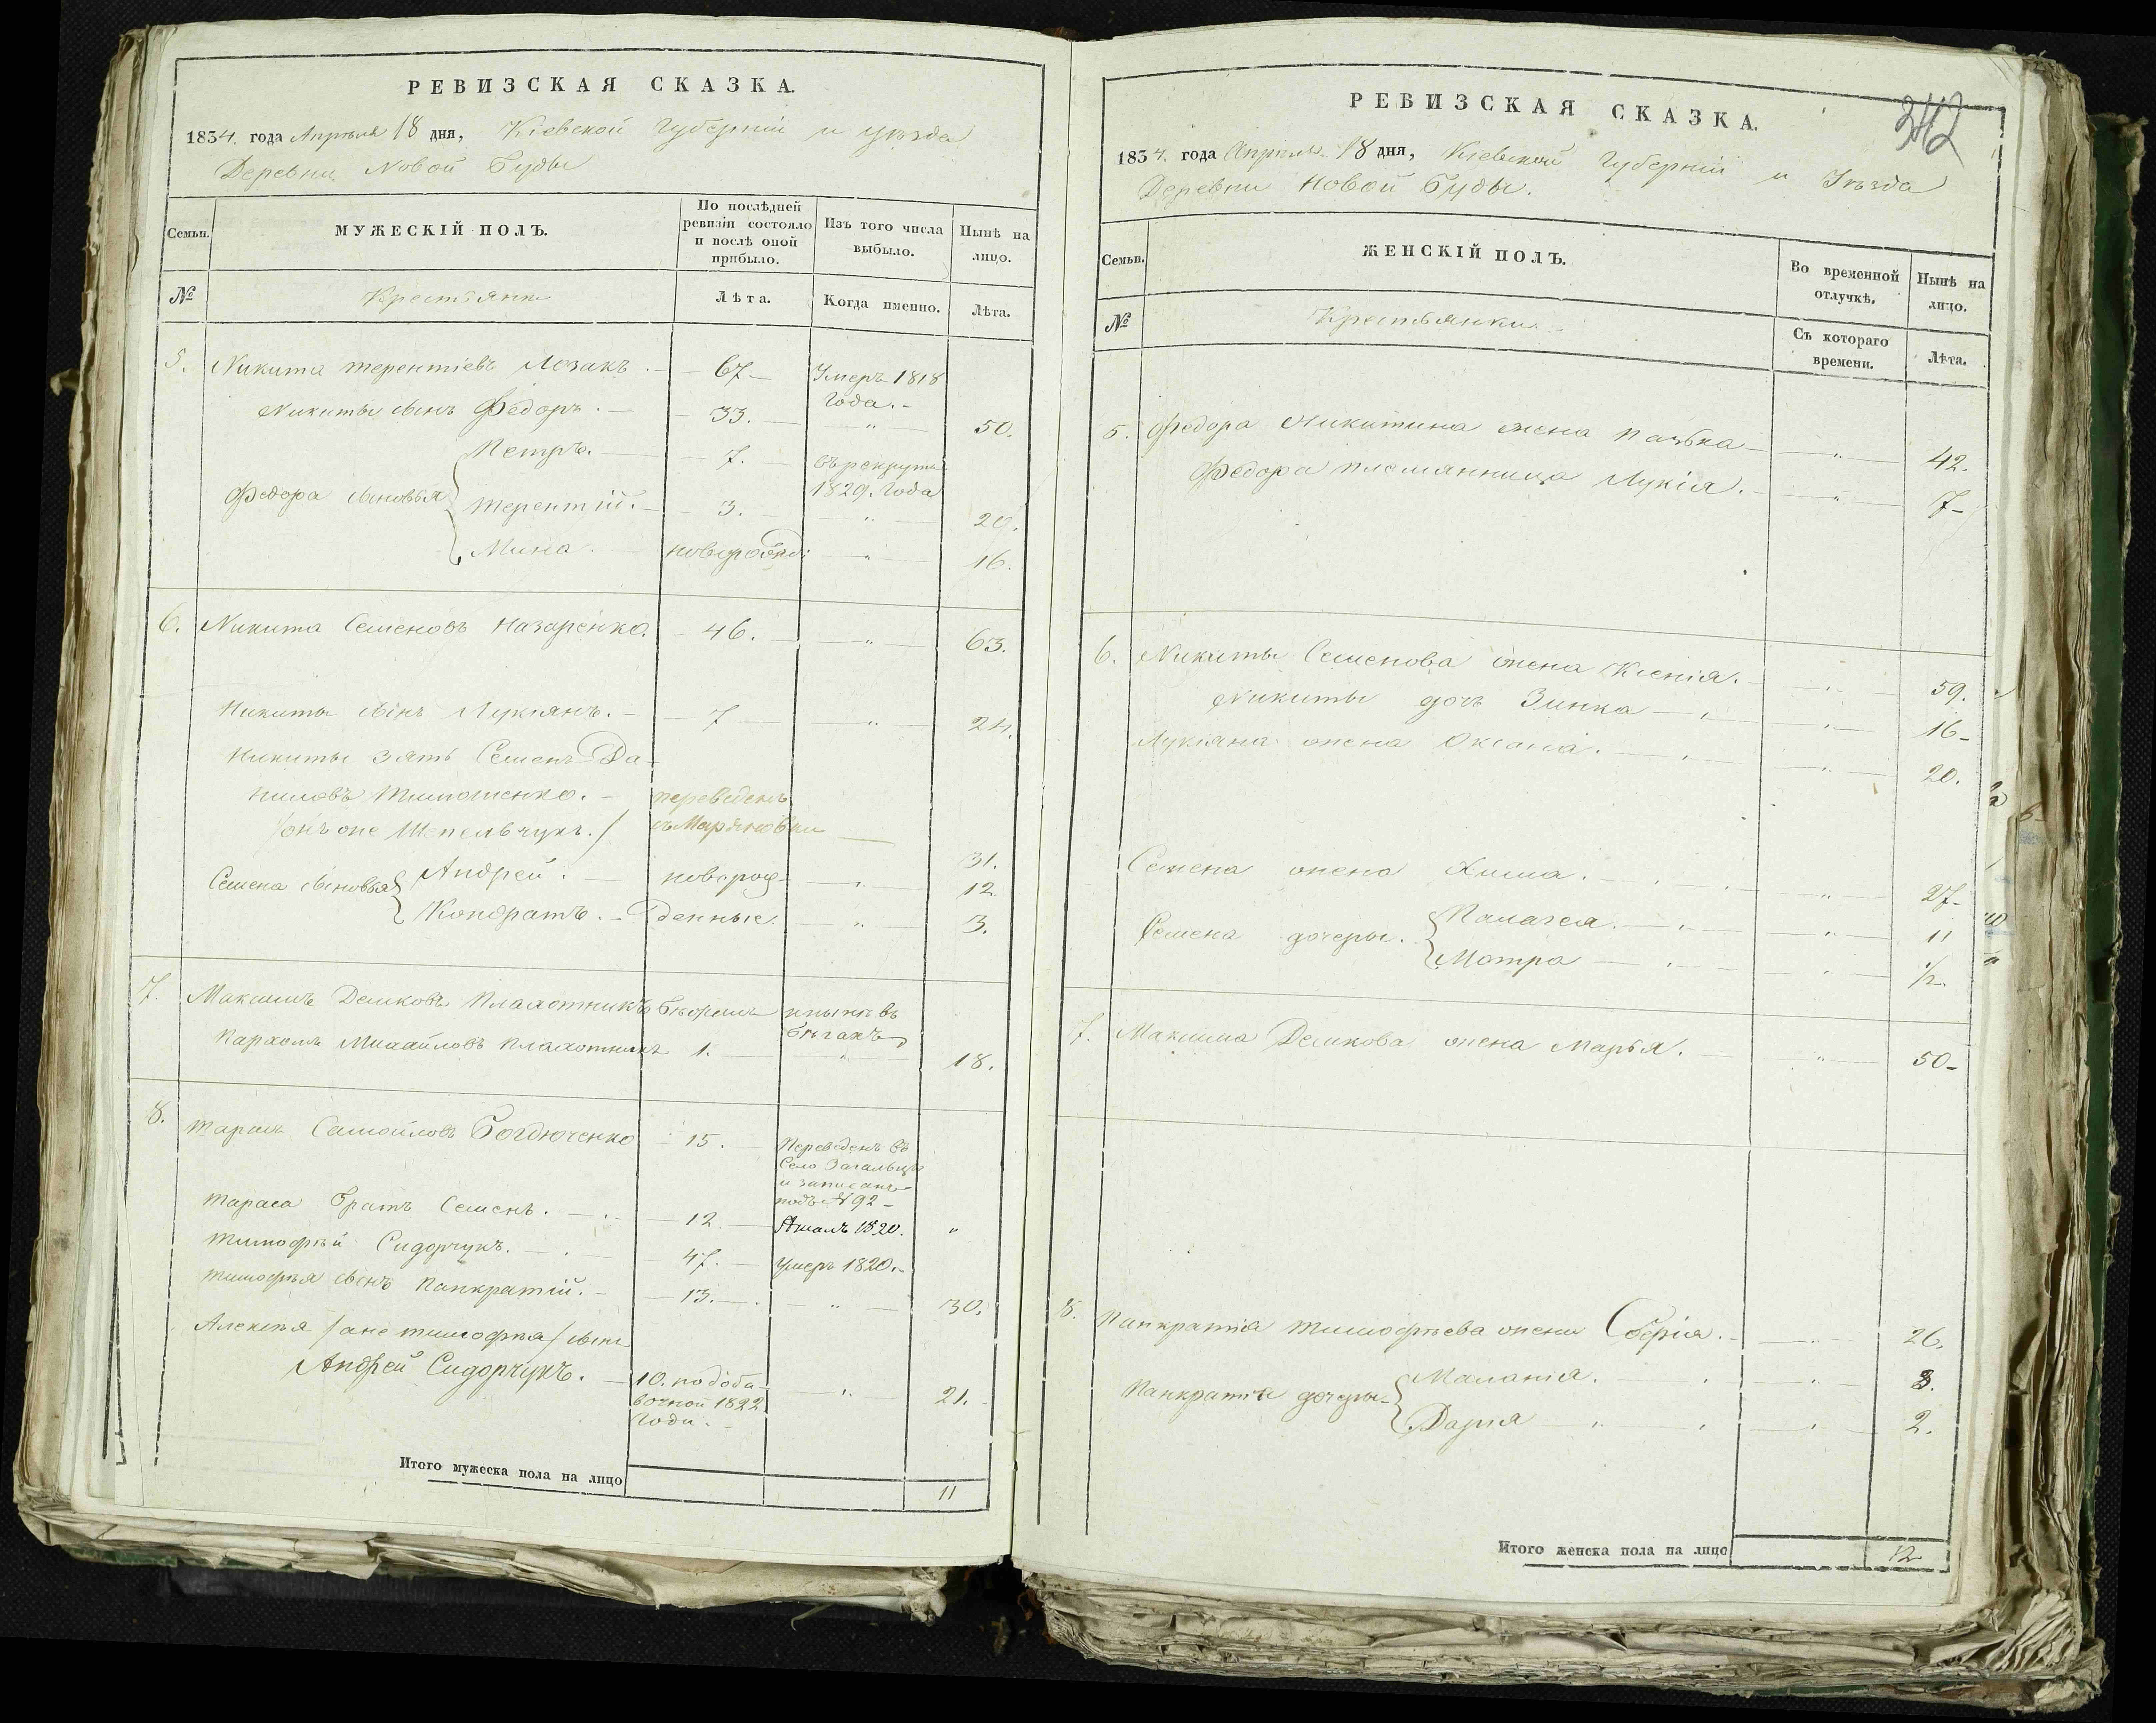 РЕВИЗСКАЯ СКАЗКА.
1834. года Апрѣля 18 дня, Кіевской Губерніи и уѣзда
Деревни Новой Буды
Семьи.
МУЖЕСКІЙ ПОЛЪ.
По послѣдней ревизіи состояло и послѣ оной прибыло.
Изъ того числа выбыло.
Нынѣ на лицо.
№
Крестьяне
Лѣта.
Когда именно.
Лѣта.
5. Никита терентіевъ Лозакъ. 67 Умеръ 1818
года.
Никиты сынъ Федоръ. 33. " 50.
Федора сыновья
Петръ. 7. въ рекруты
1829. года
терентій. 3. " 20.
Мина. новорожд: " 16.
6. Никита Семеновъ Назаренко. 46. " 63.
Никиты сынъ Лукіянъ. 7 " 24.
Никиты зять Семенъ Да-
ниловъ Тимошенко. переведенъ
/онъ же Шепельчукъ./ съ Маряновки
31.
Семена сыновья
Андрей. новорож- " 12.
Кондратъ. денные. " 3.
7. Максимъ Демковъ Плахотникъ бѣжалъ и нынѣ въ
бѣгахъ
Пархомъ Михайловъ плахотникъ 1. " 18.
8. тарасъ Самойловъ Богдюченко 15. Переведенъ въ
Село Загальцы
и записанъ
подъ № 92
тараса братъ Семенъ. 12. 1820. "
тимофѣй Сидорчукъ. 47. умеръ 1820.
тимофѣя сынъ Панкратій. 13. " 30.
Алексѣя /онже тимофѣя/ сынъ
Андрей Сидорчукъ. 10. по доба-
вочной 1822
года. " 21.
Итого мужеска пола на лицо 11
РЕВИЗСКАЯ СКАЗКА.
342
1834. года Апрѣля 18 дня, Кіевской Губерніи и Уѣзда
Деревни Новой Буды.
Семьи.
ЖЕНСКІЙ ПОЛЪ.
Во временной отлучкѣ.
Нынѣ на лицо.
№
Крестьянки.
Съ котораго времени.
Лѣта.
5. Федора Никитина жена " 42.
Федора племянница Лукія. " 7
6. Никиты Семенова жена Ксенія. " 59.
Никиты доч Зинка " 16
Лукіяна жена Оксана. " 20.
Семена жена Химка. " 27
Семена дочеры.
Палагея. " 11
Мотра " 1/2
7. Максима Демкова жена Марья. " 50
8. Панкратія тимофѣева жена Софія. " 26.
Панкратія дочеры
Маланія. " 3.
Дарія " 2.
Итого женска пола на лицо 12